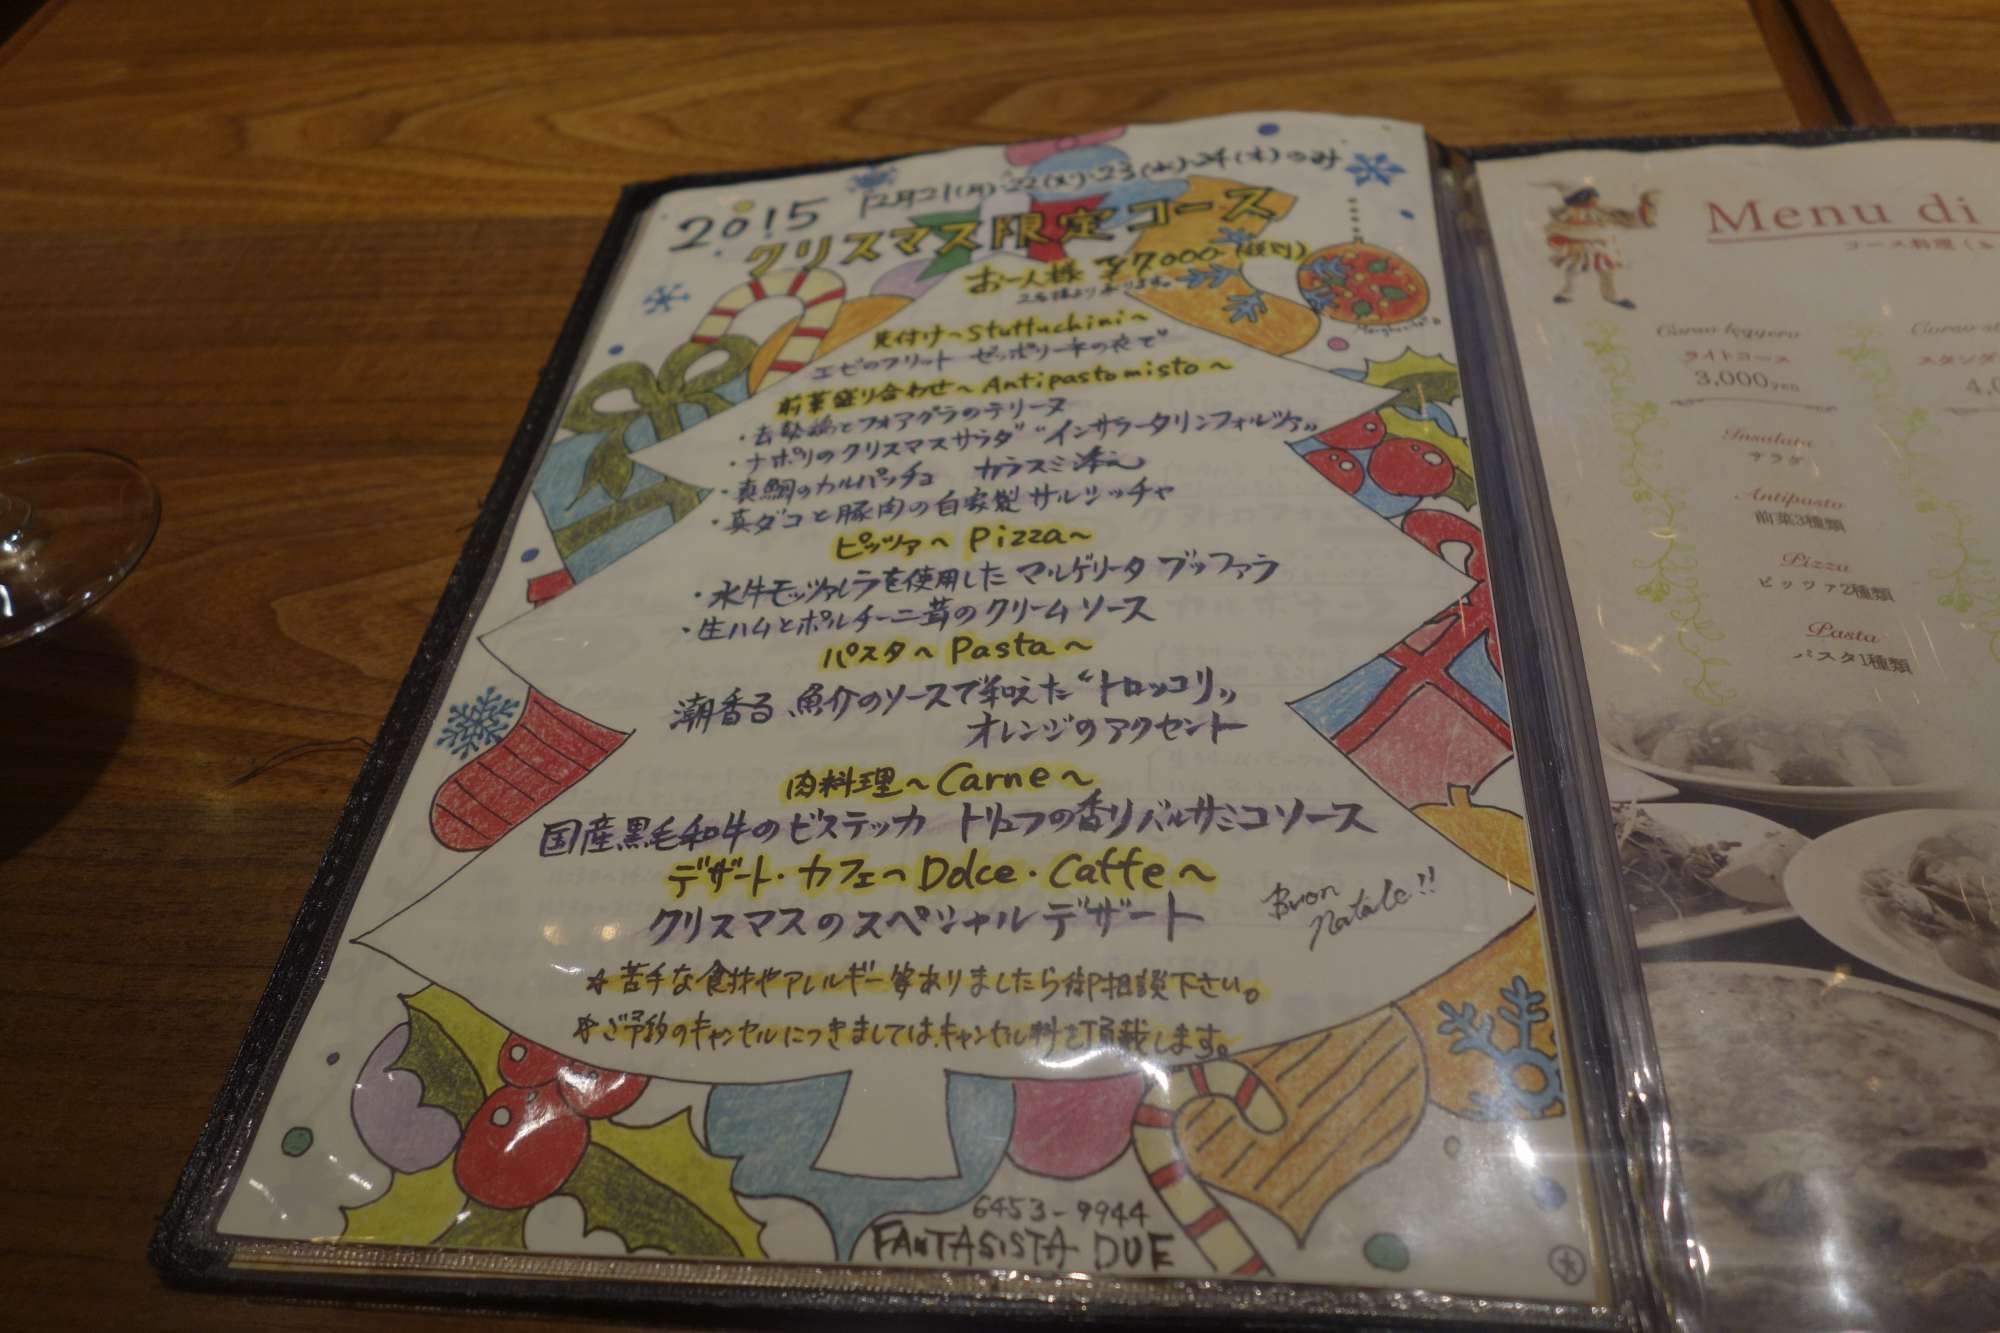 2015 12月21(月)・22(火)・23(水)・24(木)のみ
クリスマス限定コース
お一人様 ¥7000-(税別)
2名様より承ります。
見付け～Stuttuchini～
エビのフリット ゼッポリーネの衣で
前菜盛り合わせ～Antipastomisto～
・去勢鶏とフォアグラのテリーヌ
・ナポリのクリスマスサラダ"インサラータリンフォルツァ"
・真鯛のカルパッチョ カラスミ添え
・真ダコと豚肉の自家製サルシッチャ
ピッツァ～Pizza～
・水牛モッツァレラを使用したマルゲリータブッファラ
・生ハムとポルチーニ茸のクリームソース
パスタ～Pasta～
潮香る魚介のソースで和えた"トロッコリ"
オレンジのアクセント
肉料理～Carne～
国産黒毛和牛のビステッカ トリュフの香りバルサミコソース
デザート・カフェ～Dolce・Caffe～
クリスマスのスペシャルデザート
Buon
Natale!!
*苦手な食材やアレルギー等ありましたら御相談下さい。
*ご予約のキャンセルにつきましては、キャンセル料を頂戴します。
6453-9944
FANTASISTA DUE
Menu di
コース料理
Corso leggero
ライトコース
3,000yen
Insalata
サラダ
Antipasto
前菜3種類
Pizza
ピッツァ2種類
Pasta
パスタ1種類